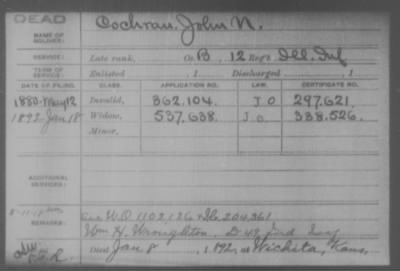 DEAD
Cochran, John N.
NAME OF SOLDIER:
SERVICE: Late rank, Co. B, 12 Reg't Ill. Inf
TERM OF SERVICE: Enlisted , 1 Discharged , 1
DATE OF FILING. CLASS. APPLICATION NO. LAW. CERTIFICATE NO.
1880-May 12 Invalid, 362,104. J.O 297.621.
1892-Jan 18 Widow, 537,638. J.O. 338,526.
Minor,
ADDITIONAL SERVICES:
REMARKS:
W.O 1102,126 204,361
Wm H. Wroughton. D 49 Ind Inf
Died Jan 8, 1892, at Wichita, Kans,